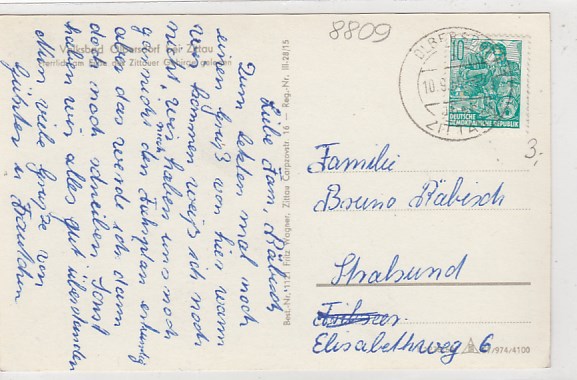 8809
Volksbad Olbersdorf bei Zittau
Herrlich am Fuße der Zittauer Gebirge gelegen
Liebe Fam. Räbisch
Zum letzten mal noch
einen Gruß von hier wann
wir kommen weiß ich noch
nicht, wir haben uns noch
gar nicht den Fahrplan
auch das werde ich dann
doch noch schreiben Sonst
haben wir alles gut überstanden
Nun viele Grüße von
Günter u. Traudchen
Best.-Nr. 1121 Fritz Wagner, Zittau Carpzovstr. 16 — Reg.-Nr. III-28/15
10
DEUTSCHE
DEMOKRATISCHE REPUBLIK
OLBERSD
ZITTAU
3,-
Familie
Bruno Räbisch
Stralsund
Elisabethweg 6
/974/4100